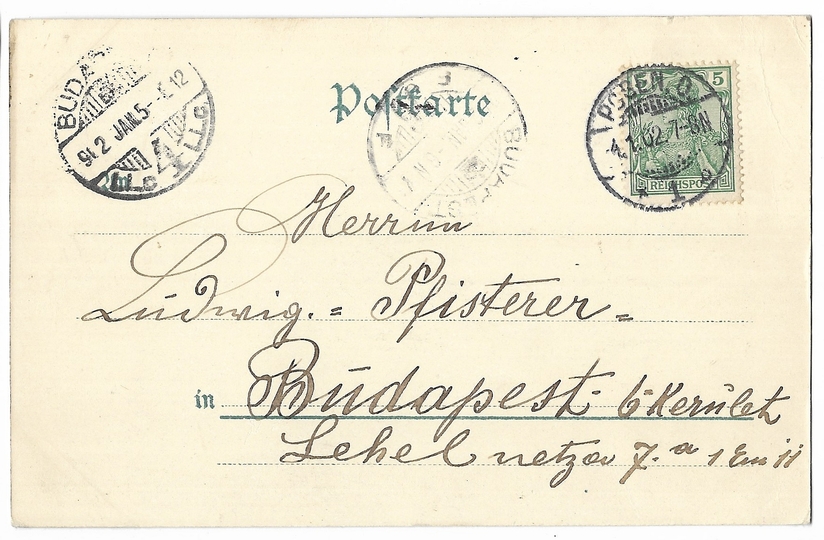 Postkarte
BUDAPEST
902 JAN. 5
BUDAPEST
POSEN O.
4.1.02.7-8N
1
5
REICHSPOST
Herrn
Ludwig.= Pfisterer=
in Budapest. 6 Kerületz
Lehel netzov 7.a 1 Em 11